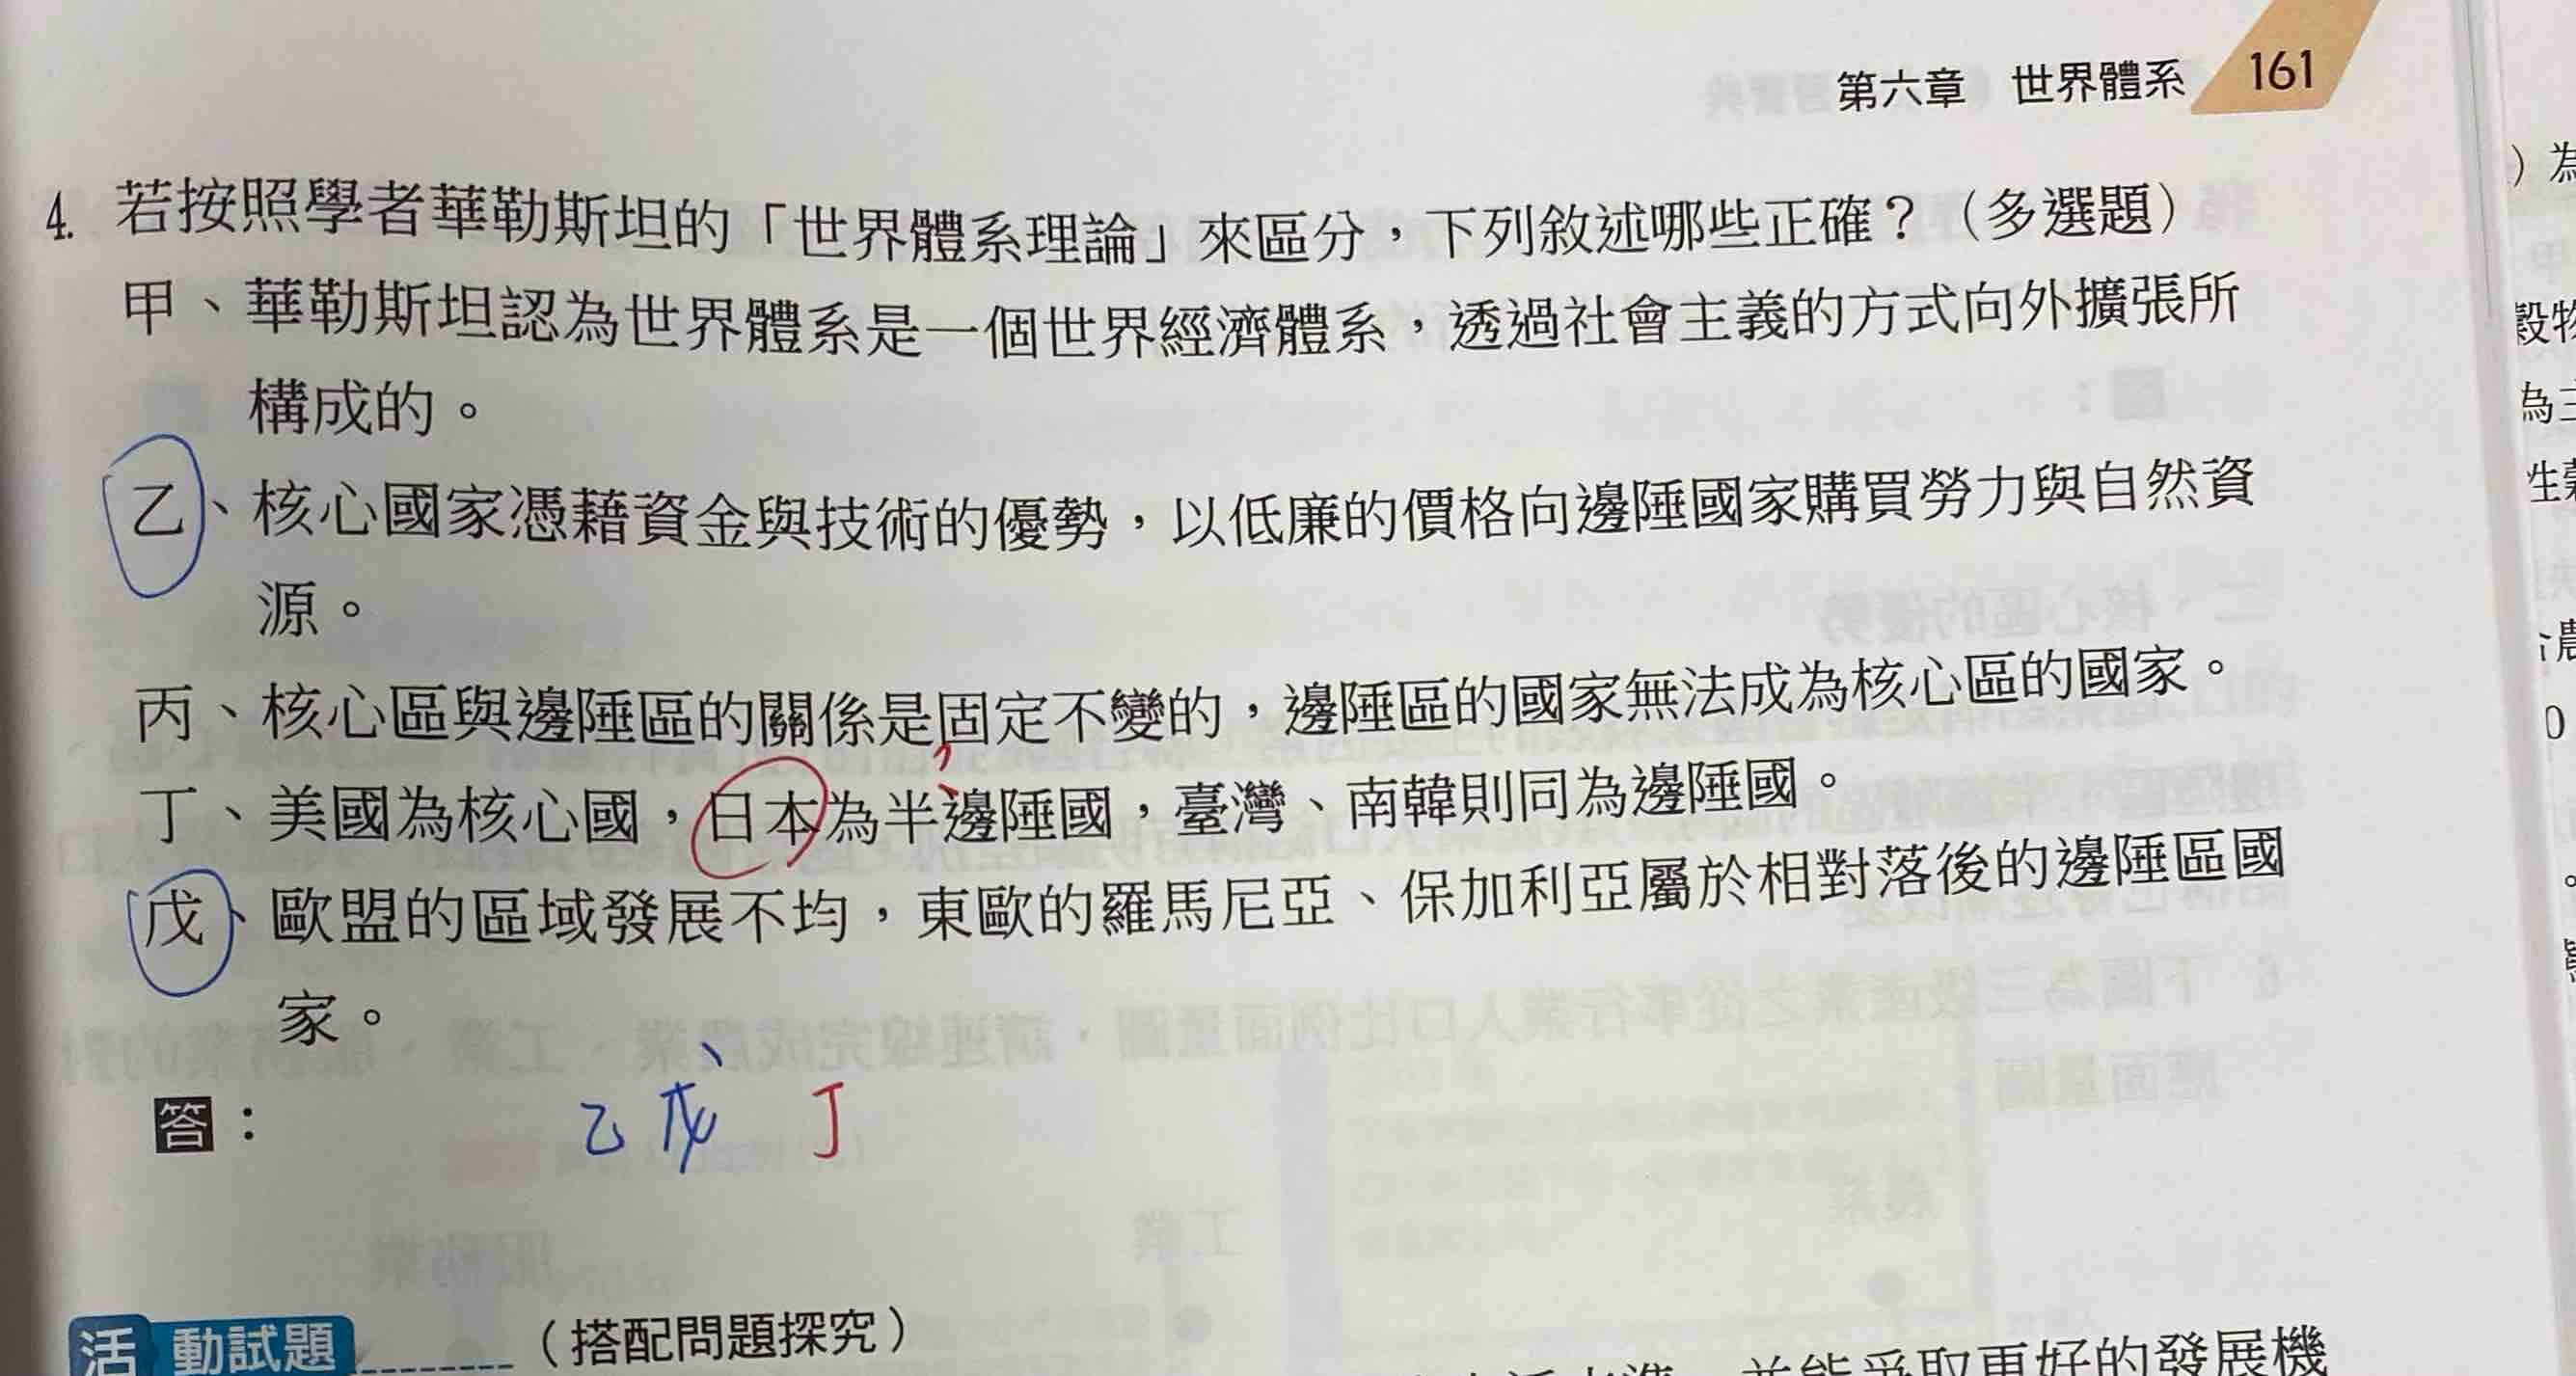 第六章 世界體系 161
4. 若按照學者華勒斯坦的「世界體系理論」來區分，下列敘述哪些正確？（多選題）
甲、華勒斯坦認為世界體系是一個世界經濟體系，透過社會主義的方式向外擴張所
構成的。
乙、核心國家憑藉資金與技術的優勢，以低廉的價格向邊陲國家購買勞力與自然資
源。
丙、核心區與邊陲區的關係是固定不變的，邊陲區的國家無法成為核心區的國家。
?
丁、美國為核心國，日本為半邊陲國，臺灣、南韓則同為邊陲國。
戊、歐盟的區域發展不均，東歐的羅馬尼亞、保加利亞屬於相對落後的邊陲區國
家。
答： 乙戊、丁
活動試題 （搭配問題探究）
並能爭取更好的發展機
）為
穀物
為三
性
0